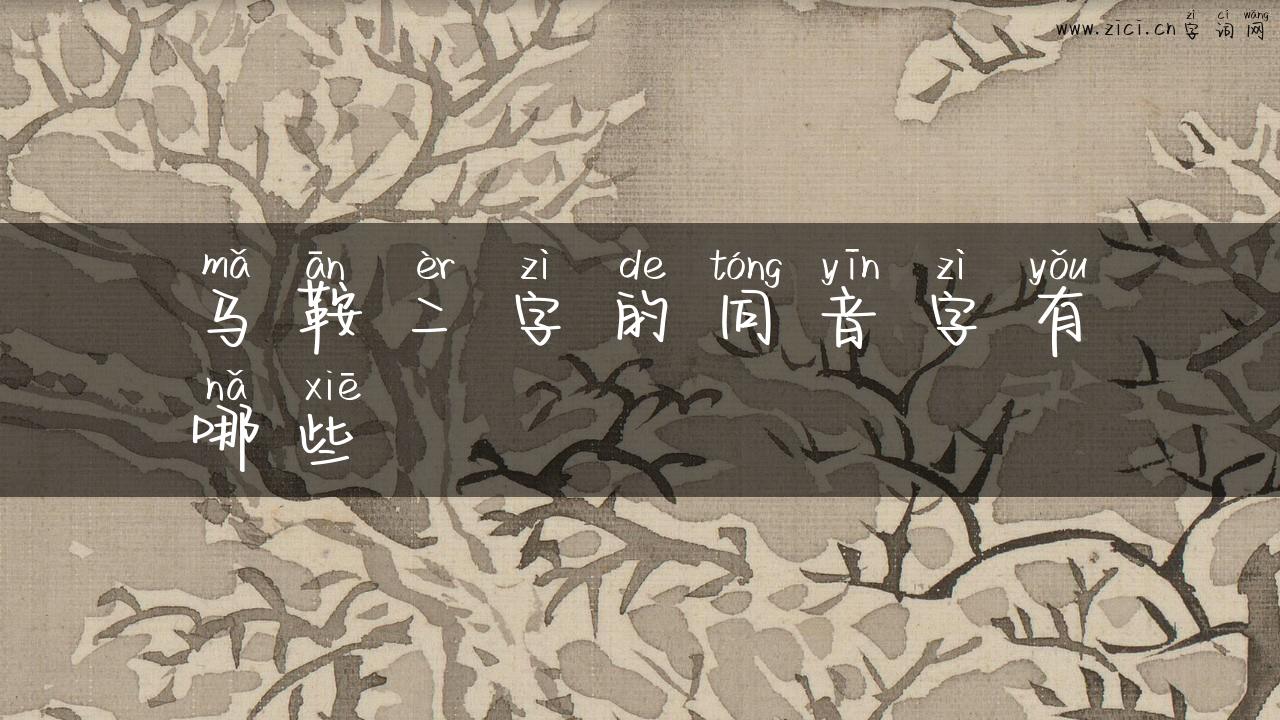 zì cí wǎng
www.zici.cn字词网
mǎ ān èr zì de tóng yīn zì yǒu
马鞍二字的同音字有
nǎ xiē
哪些